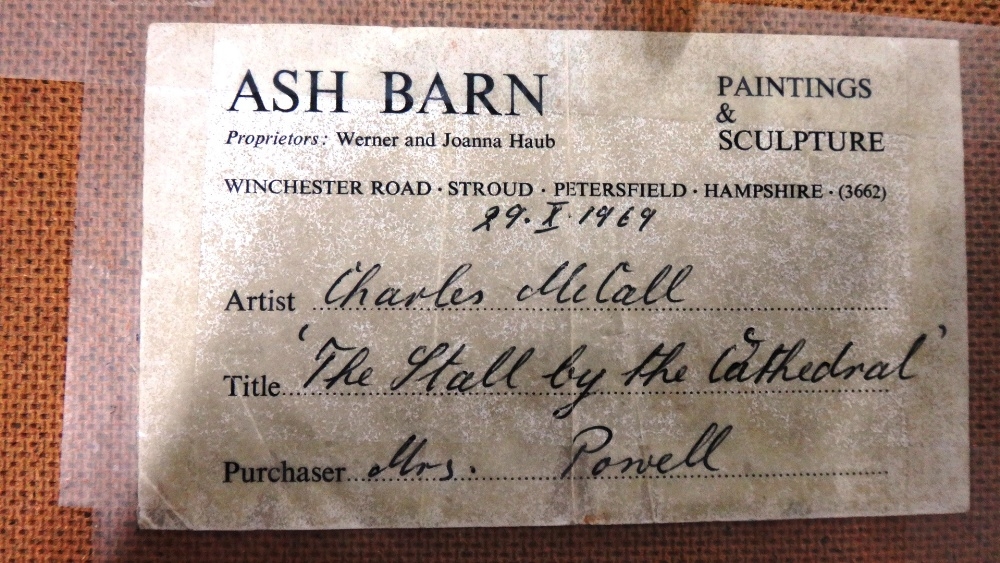 ASH BARN
Proprietors: Werner and Joanna Haub
PAINTINGS
&
SCULPTURE
WINCHESTER ROAD · STROUD · PETERSFIELD · HAMPSHIRE · (3662)
29. X. 1969
Artist Charles McCall
Title 'The Stall by the Cathedral'
Purchaser Mrs. Powell